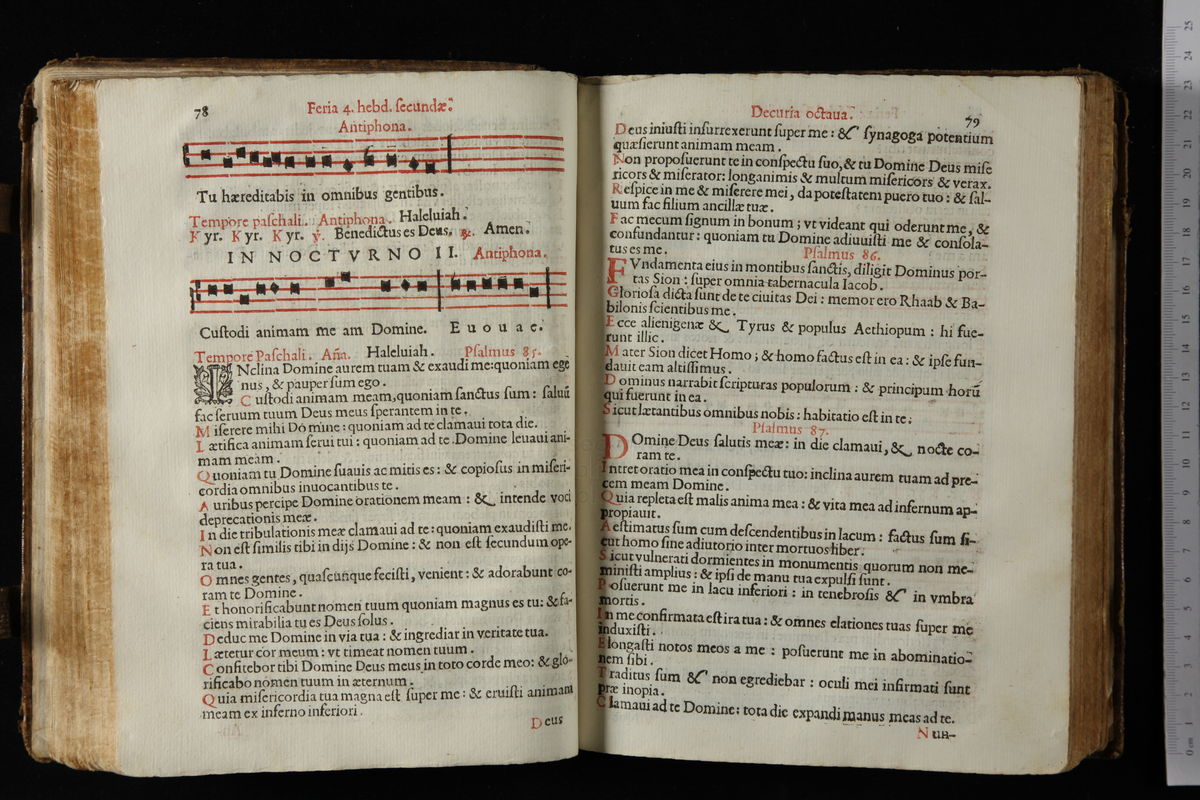 78
Feria 4. hebd. ſecundæ.
Antiphona.
Tu hæreditabis in omnibus gentibus.
Tempore paſchali. Antiphona. Haleluiah.
Kyr. Kyr. Kyr. ℣. Benedictus es Deus. ℞. Amen.
IN NOCTVRNO II. Antiphona.
Cuſtodi animam me am Domine. E u o u a e.
Tempore Paſchali. Aña. Haleluiah. Pſalmus 85.
INclina Domine aurem tuam & exaudi me: quoniam ege
nus, & pauper ſum ego.
Cuſtodi animam meam, quoniam ſanctus ſum: ſaluū
fac ſeruum tuum Deus meus ſperantem in te.
Miſerere mihi Domine: quoniam ad te clamaui tota die.
Lætifica animam ſerui tui: quoniam ad te Domine leuaui ani-
mam meam.
Quoniam tu Domine ſuauis ac mitis es: & copioſus in miſeri-
cordia omnibus inuocantibus te.
Auribus percipe Domine orationem meam: & intende voci
deprecationis meæ.
In die tribulationis meæ clamaui ad te: quoniam exaudiſti me.
Non eſt ſimilis tibi in dijs Domine: & non eſt ſecundum ope-
ra tua.
Omnes gentes, quaſcunque feciſti, venient: & adorabunt co-
ram te Domine.
Et honorificabunt nomen tuum quoniam magnus es tu: & fa-
ciens mirabilia tu es Deus ſolus.
Deduc me Domine in via tua: & ingrediar in veritate tua.
Lætetur cor meum: vt timeat nomen tuum.
Confitebor tibi Domine Deus meus in toto corde meo: & glo-
rificabo nomen tuum in æternum.
Quia miſericordia tua magna eſt ſuper me: & eruiſti animam
meam ex inferno inferiori.
Deus
Decuria octaua.
79
Deus iniuſti inſurrexerunt ſuper me: & ſynagoga potentium
quæſierunt animam meam.
Non propoſuerunt te in conſpectu ſuo, & tu Domine Deus miſe
ricors & miſerator: longanimis & multum miſericors & verax.
Reſpice in me & miſerere mei, da poteſtatem puero tuo: & ſal-
uum fac filium ancillæ tuæ.
Fac mecum ſignum in bonum; vt videant qui oderunt me, &
confundantur: quoniam tu Domine adiuuiſti me & conſola-
tus es me.
Pſalmus 86.
FVndamenta eius in montibus ſanctis, diligit Dominus por-
tas Sion: ſuper omnia tabernacula Iacob.
Glorioſa dicta ſunt de te ciuitas Dei: memor ero Rhaab & Ba-
bilonis ſcientibus me.
Ecce alienigenæ & Tyrus & populus Aethiopum: hi fue-
runt illic.
Mater Sion dicet Homo; & homo factus eſt in ea: & ipſe fun-
dauit eam altiſſimus.
Dominus narrabit ſcripturas populorum: & principum horū
qui fuerunt in ea.
Sicut lætantibus omnibus nobis: habitatio eſt in te:
Pſalmus 87.
DOmine Deus ſalutis meæ: in die clamaui, & nocte co-
ram te.
Intret oratio mea in conſpectu tuo: inclina aurem tuam ad pre-
cem meam Domine.
Quia repleta eſt malis anima mea: & vita mea ad infernum ap-
propiauit.
Aeſtimatus ſum cum deſcendentibus in lacum: factus ſum ſi-
cut homo ſine adiutorio inter mortuos liber.
Sicut vulnerati dormientes in monumentis quorum non me-
miniſti amplius: & ipſi de manu tua expulſi ſunt.
Poſuerunt me in lacu inferiori: in tenebroſis & in vmbra
mortis.
In me confirmata eſt ira tua: & omnes elationes tuas ſuper me
induxiſti.
Elongaſti notos meos a me: poſuerunt me in abominatio-
nem ſibi.
Traditus ſum & non egrediebar: oculi mei infirmati ſunt
præ inopia.
Clamaui ad te Domine: tota die expandi manus meas ad te.
Nun-